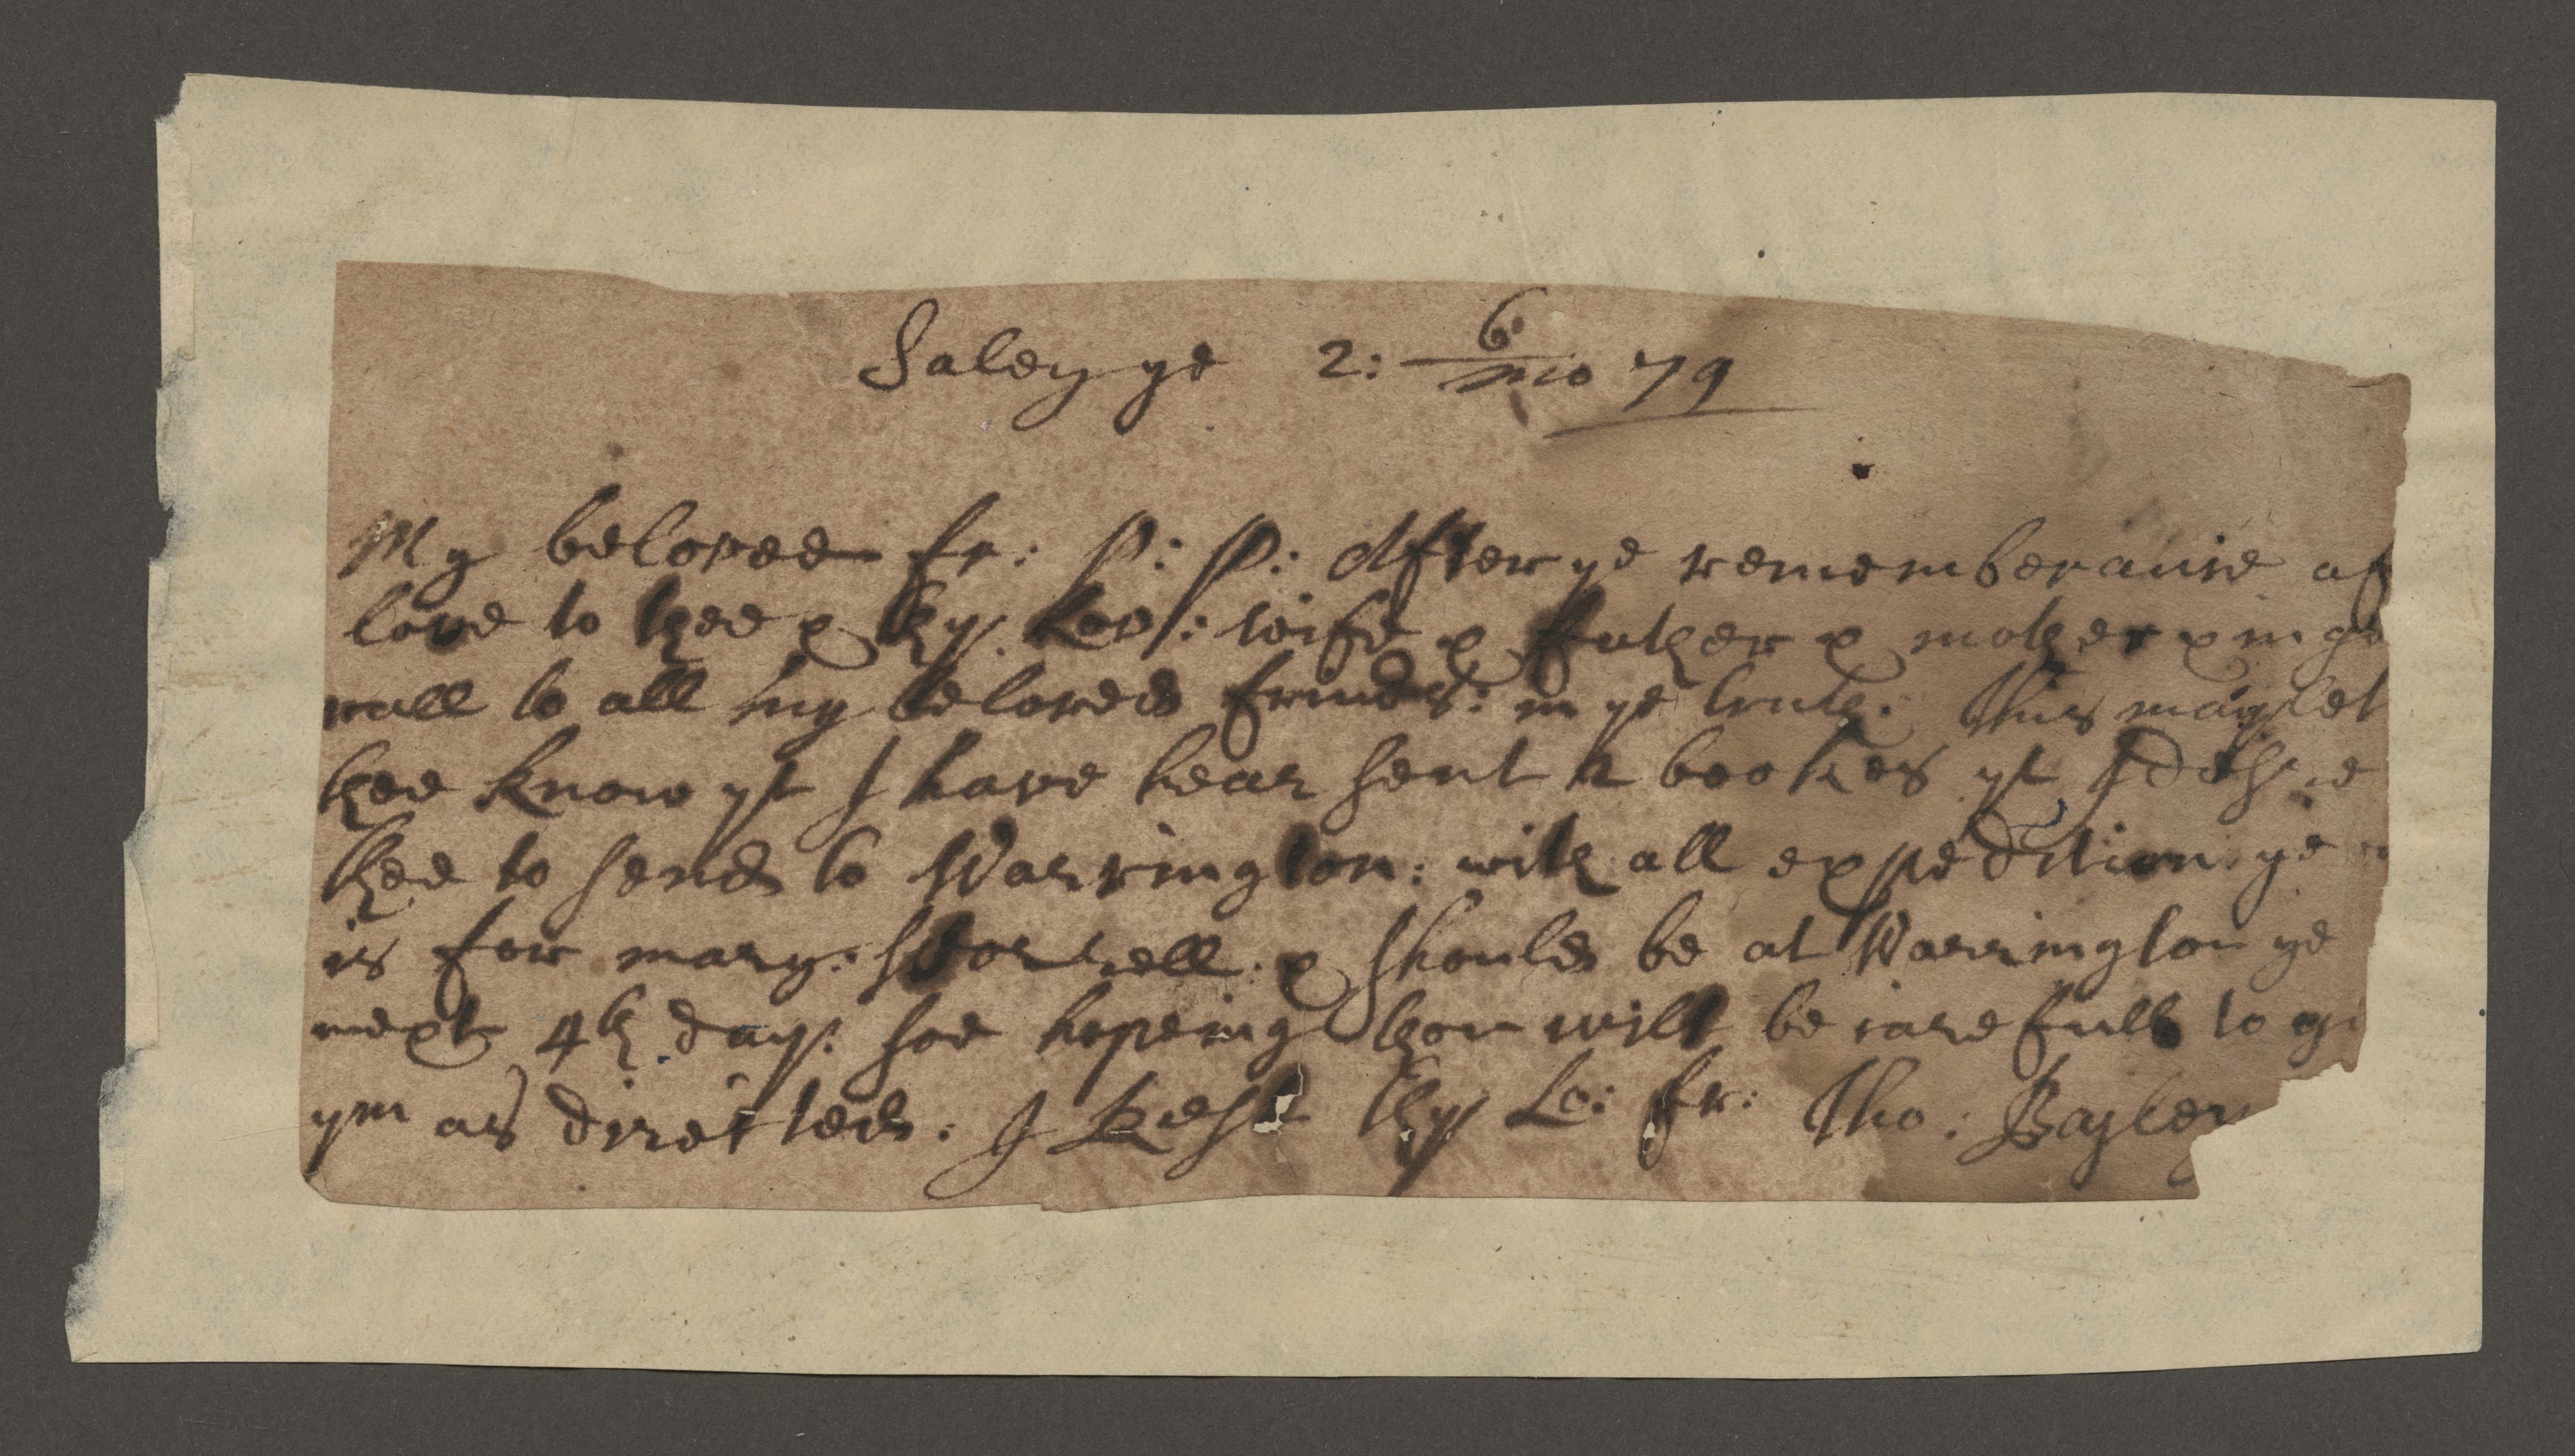 Saley ye 2: 6/mo 79
My beloved fr: P: P: After ye rememberance of
love to thee & thy Lov: wife & father & mother & in ge
rall to all my beloved friends: in ye truth. This may let
thee know yt I have hear sent 2 bookes yt I desire
thee to send to Warrington: with all expedition ye
is for mary: & should be at Warrington ye
next 4th day: soe hopeing thou will be carefull to
ym as directed. I Rest thy Lo: fr: Tho: